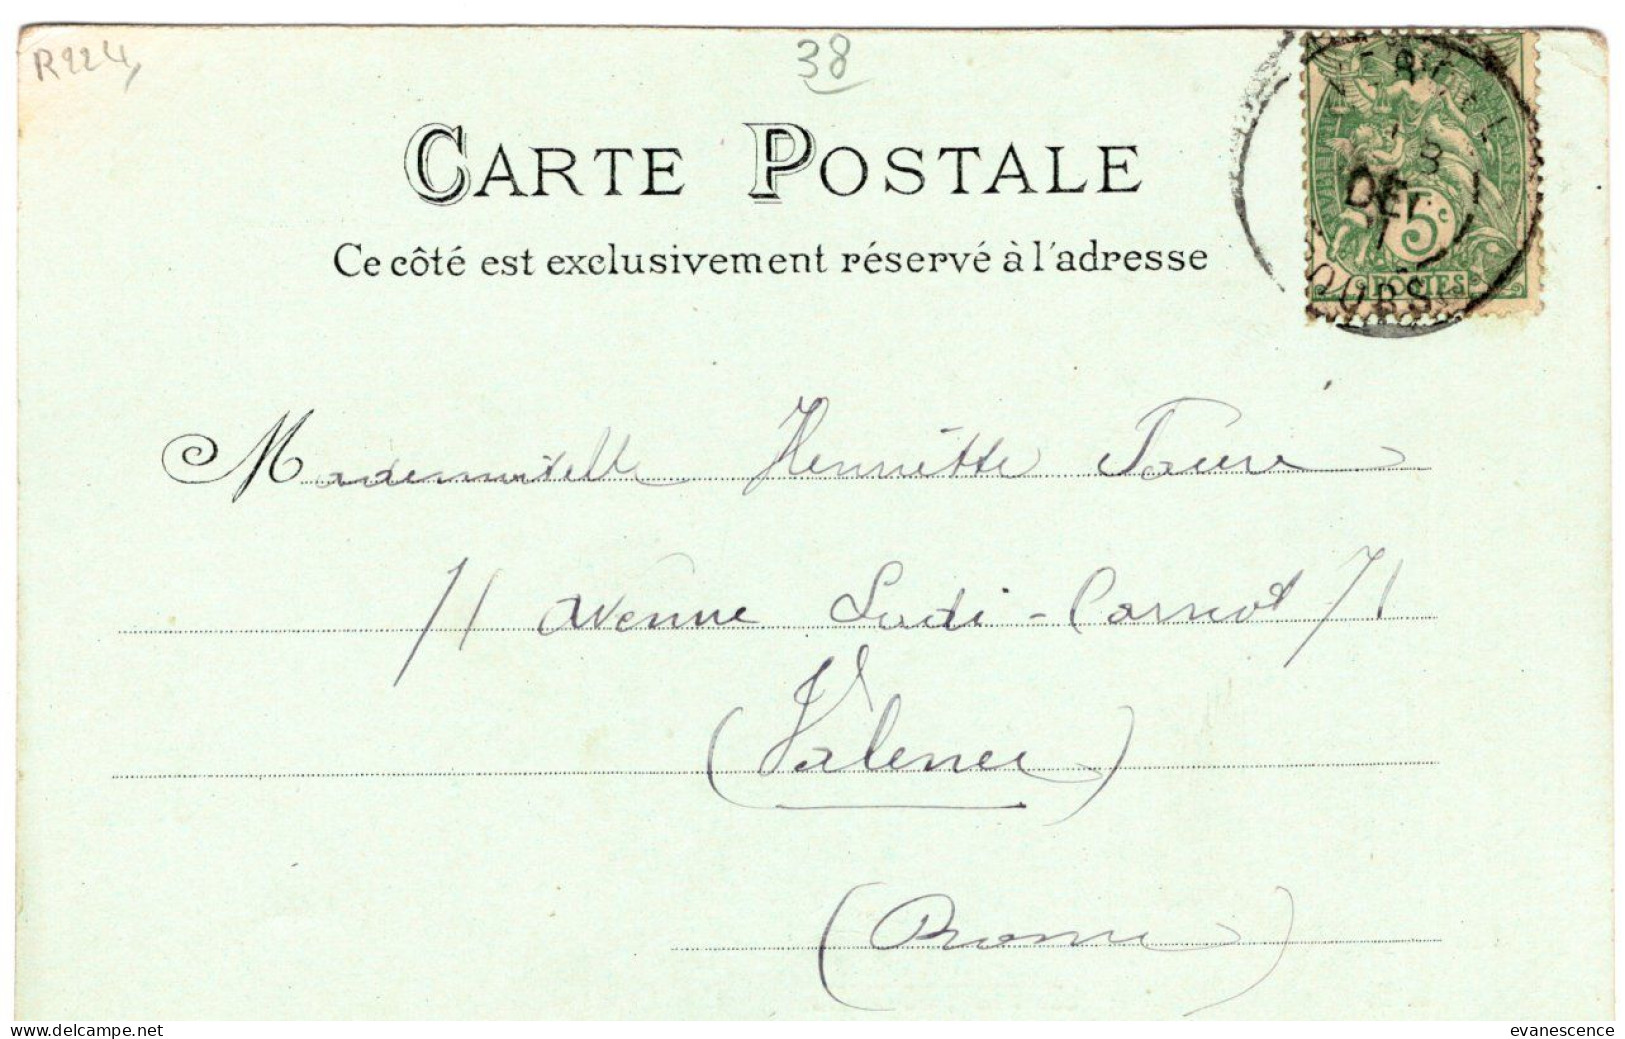 R224
38
CARTE POSTALE
Ce côté est exclusivement réservé à l'adresse
5c
DEC
POSTES
Mademoiselle Henriette Faure
71 avenue Sadi-Carnot 71
(Valence)
(Drome)
www.delcampe.net
evanescence